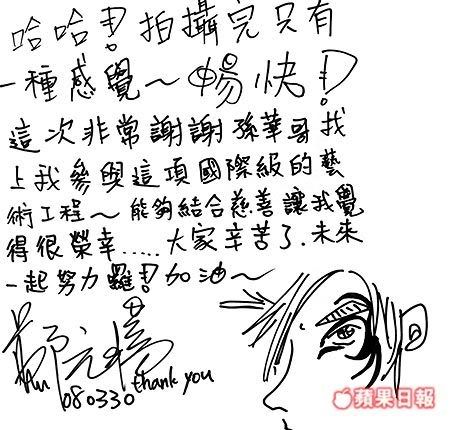 哈哈!拍攝完只有
一種感覺~暢快!
這次非常謝謝孫華哥找
上我參與這項國際級的藝
術工程~能夠結合慈善讓我覺
得很榮幸.....大家辛苦了.未來
一起努力囉!加油~
080330 thank you
蘋果日報